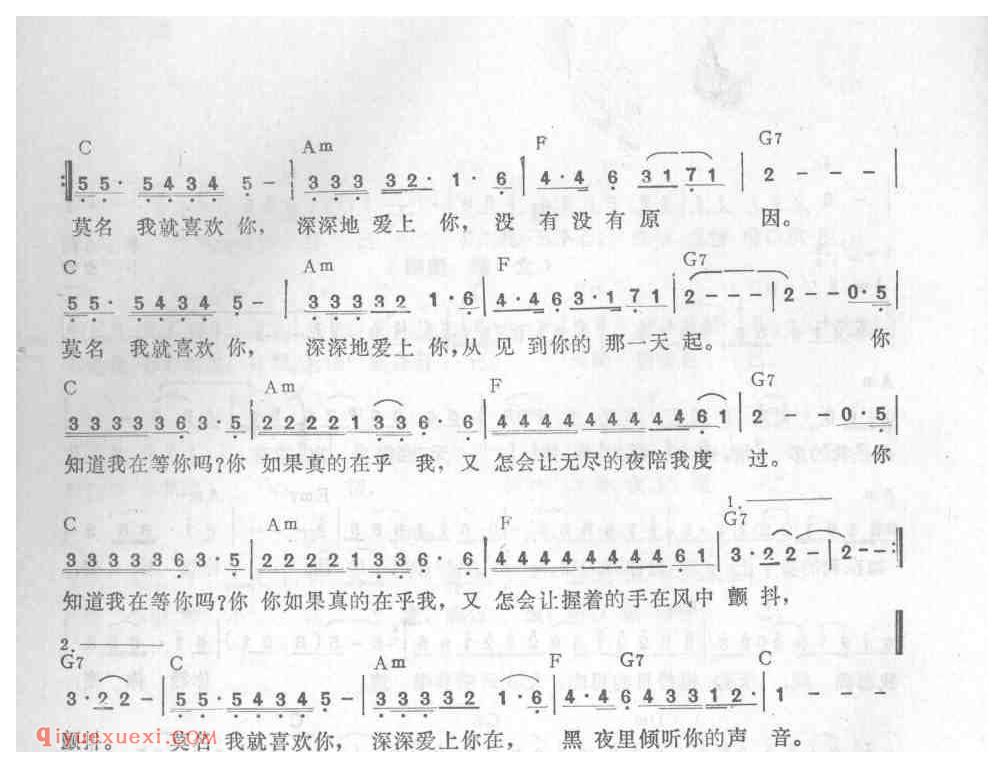 C Am F G7
5 5· 5 4 3 4 5 – | 3 3 3 3 2· 1· 6 | 4·4 6 3 1 7 1 | 2 – – – |
莫名 我就喜欢 你， 深深地 爱上 你，没 有没有原 因。
C Am F G7
5 5· 5 4 3 4 5 – | 3 3 3 3 2 1·6 | 4·4 6 3·1 7 1 | 2 – – – | 2 – – 0·5 |
莫名 我就喜欢 你， 深深地爱上 你,从 见 到你的 那一天 起。 你
C Am F G7
3 3 3 3 3 6 3·5 | 2 2 2 2 1 3 3 6·6 | 4 4 4 4 4 4 4 4 4 6 1 | 2 – – 0·5 |
知道我在等你吗?你 如果真的在乎 我，又 怎会让无尽的夜陪我度 过。 你
1.
C Am F G7
3 3 3 3 3 6 3·5 | 2 2 2 2 1 3 3 6·6 | 4 4 4 4 4 4 4 4 4 6 1 | 3·2 2 – | 2 – – :||
知道我在等你吗?你 你如果真的在乎我，又 怎会让握着的手在风中 颤 抖，
2.
G7 C Am F G7 C
3·2 2 – | 5 5· 5 4 3 4 5 – | 3 3 3 3 2 1·6 | 4·4 6 4 3 3 1 2· | 1 – – – ||
颤抖。 莫名 我就喜欢你， 深深爱上你在， 黑 夜里倾听你的声 音。
qiyuexuexi.com